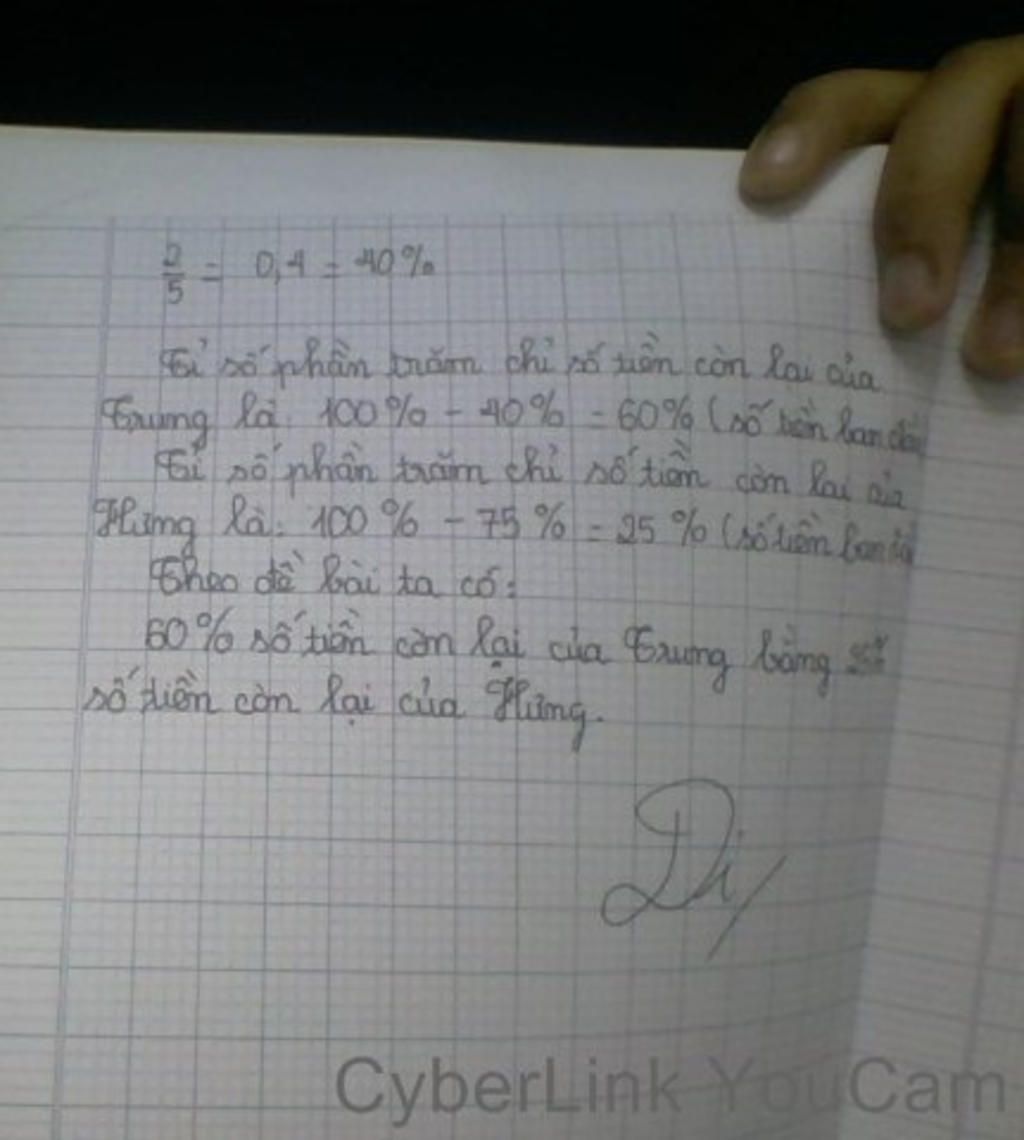 2/5 = 0,4 = 40%
Tỉ số phần trăm chỉ số tiền còn lại của
Trung là: 100% - 40% = 60% (số tiền ban đầu
Tỉ số phần trăm chỉ số tiền còn lại của
Hùng là: 100% - 75% = 25% (số tiền ban đầ
Theo đề bài ta có:
60% số tiền còn lại của Trung bằng
số tiền còn lại của Hùng.
Di
CyberLink YouCam